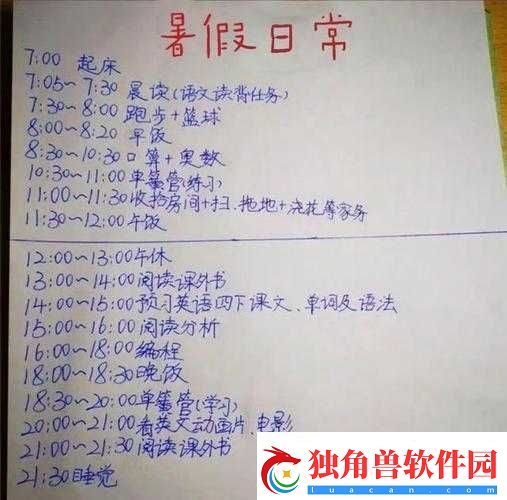 暑假日常
7:00 起床
7:05~7:30 晨读(语文读背任务)
7:30~8:00 跑步+篮球
8:00~8:20 早饭
8:30~10:30 口算+奥数
10:30~11:00 单簧管(练习)
11:00~11:30 收拾房间+扫、拖地+浇花等家务
11:30~12:00 午饭
12:00~13:00 午休
13:00~14:00 阅读课外书
14:00~15:00 预习英语四下课文、单词及语法
15:00~16:00 阅读分析
16:00~18:00 编程
18:00~18:30 晚饭
18:30~20:00 单簧管(学习)
20:00~21:00 看英文动画片、电影
21:00~21:30 阅读课外书
21:30 睡觉
独角兽软件园
luacan.com